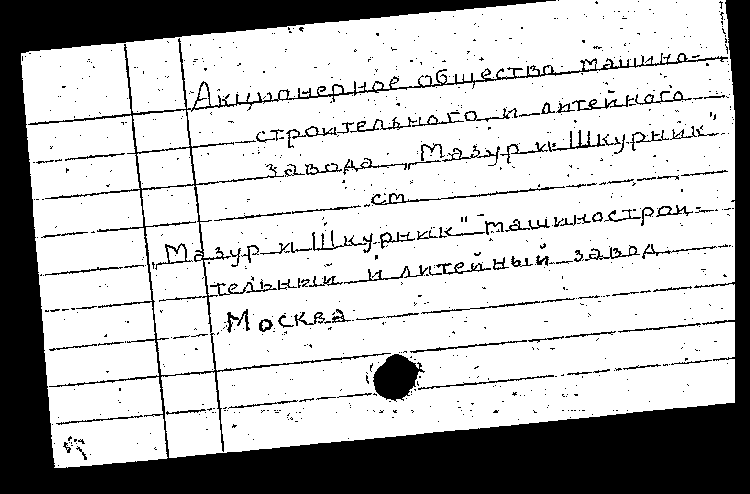 Акционерное общество машино-
строительного и литейного
завода „Мазур и Шкурник"
см
„Мазур и Шкурник" машинострои-
тельный и литейный завод
Москва